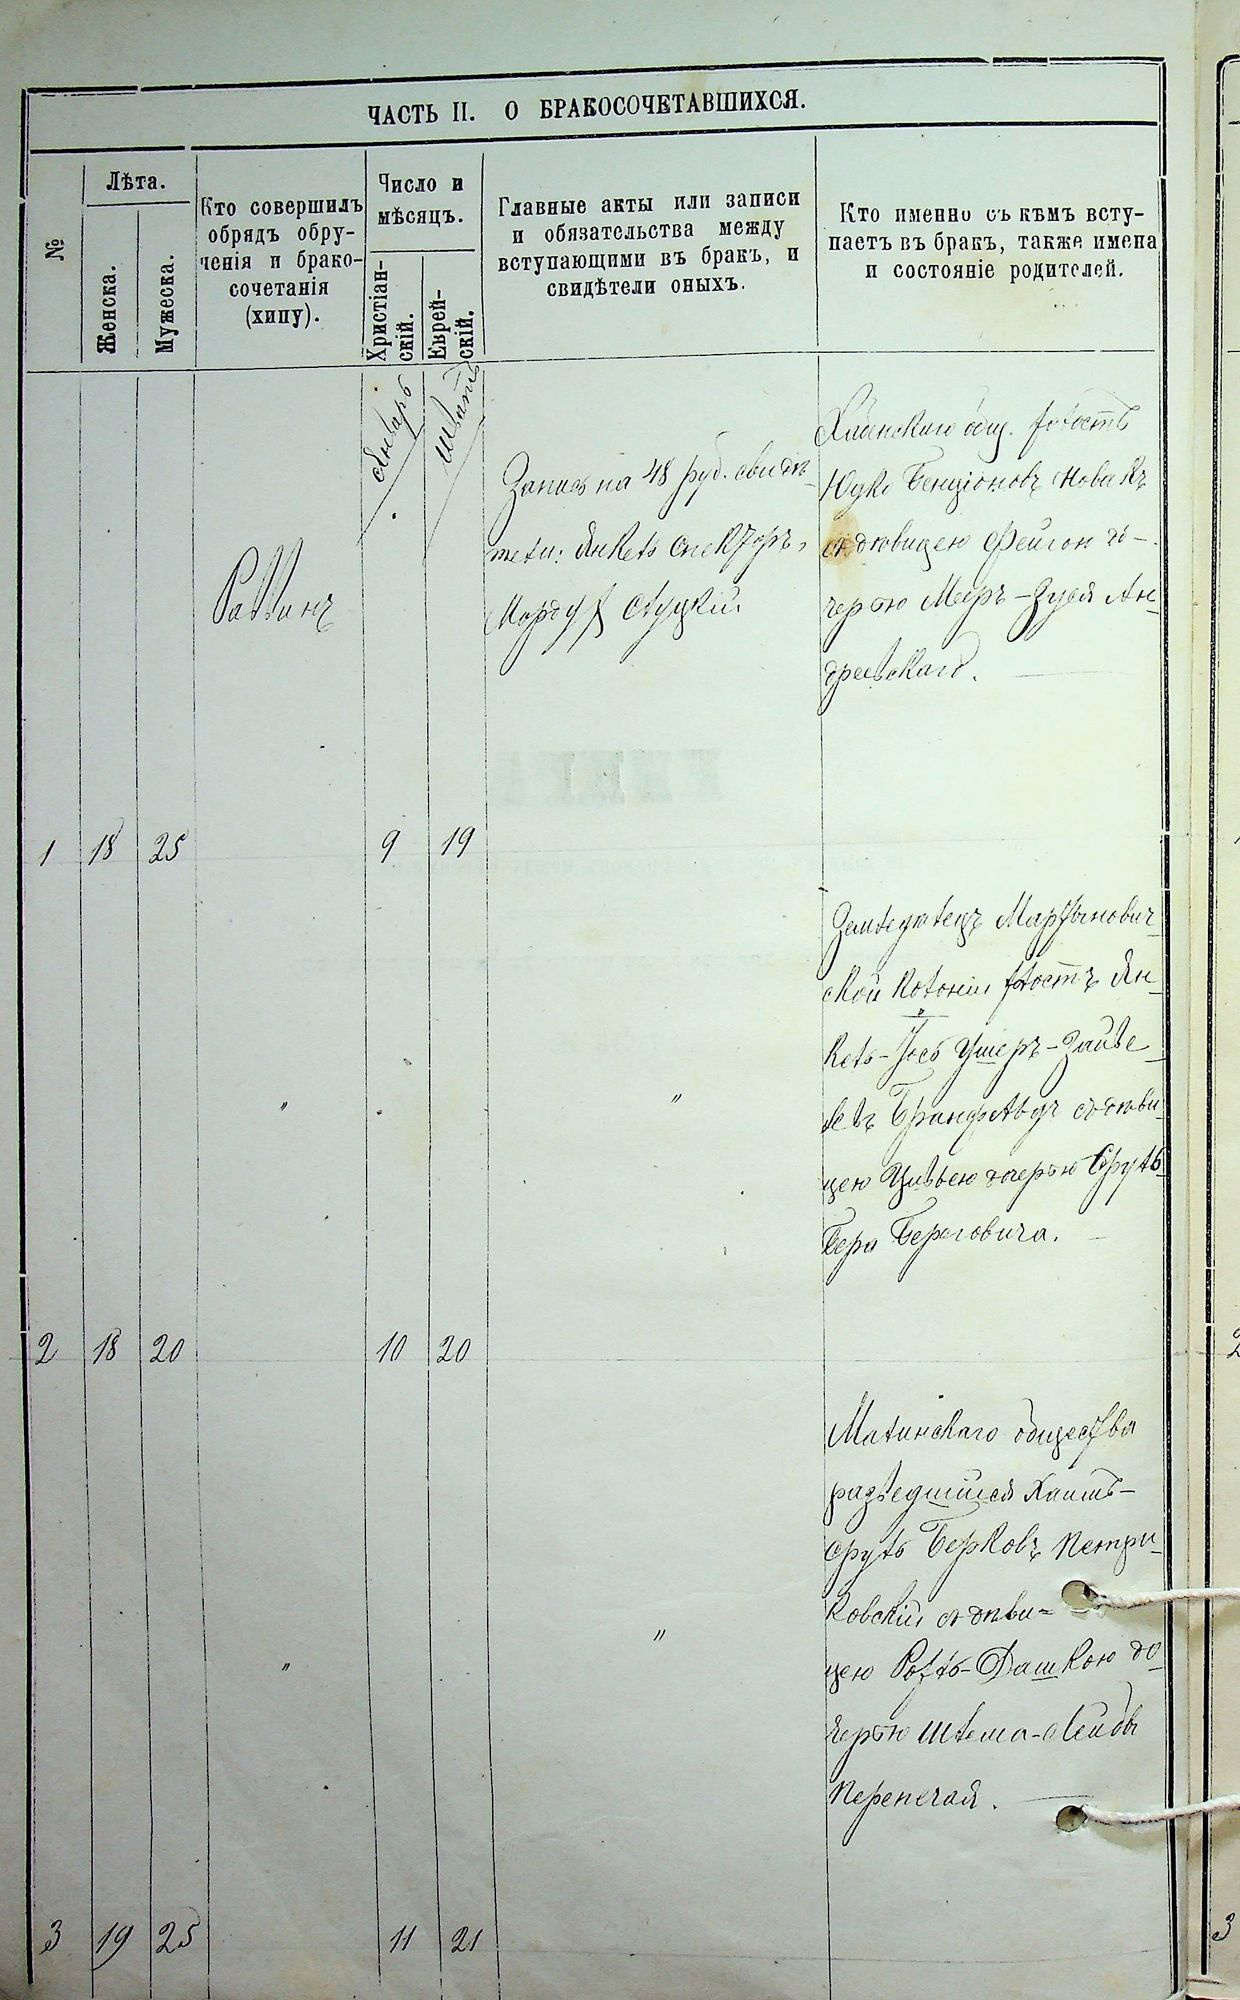 ЧАСТЬ II. О БРАКОСОЧЕТАВШИХСЯ.
№
Лѣта.
Женска.
Мужеска.
Кто совершилъ
обрядъ обру-
ченія и брако-
сочетанія
(хипу).
Число и
мѣсяцъ.
Христіан-
скій.
Еврей-
скій.
Главные акты или записи
и обязательства между
вступающими въ бракъ, и
свидѣтели оныхъ.
Кто именно съ кѣмъ всту-
паетъ въ бракъ, также имена
и состояніе родителей.
Январь
Шватъ
Раввинъ
Запись на 48 руб. свидѣ-
тели: Янкель Спекторъ,
Мордух Слуцкій
общ. холостъ
Бенціоновъ Новакъ
съ дѣвицею Фейгою до-
черью Мееръ-Зуся Ан-
дреевскаго.
1 18 25 9 19
Земледѣлецъ Мартынович-
ской колоніи холостъ Ян-
кель-Іось Ушеръ-Зайве-
левъ съ дѣви-
цею Цивьею дочерью Сруль-
Бера Береговича.
" "
2 18 20 10 20
Малинскаго общества
разведшійся Хаимъ-
Сруль Берковъ Петри-
ковскій съ дѣви=
цею -Дашкою до-
черью Шлема-Лейбы
Перепечая.
" "
3 19 25 11 21
2
3